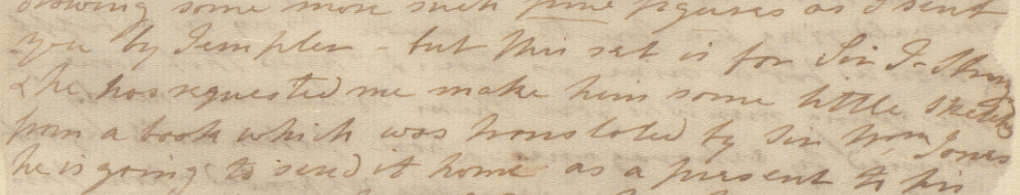 drawing some more such fine figures as I sent
you by Templer - but this set is for Sir J-
& he has requested me make him some little sketches
from a book which was translated by Sir Wm Jones
he is going to send it home as a present to his